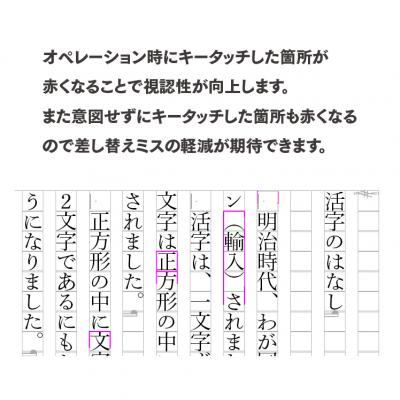 オペレーション時にキータッチした箇所が
赤くなることで視認性が向上します。
また意図せずにキータッチした箇所も赤くなる
ので差し替えミスの軽減が期待できます。
活字のはなし
明治時代、わが
ン（輸入）されま
活字は、一文字
文字は正方形の中
されました。
正方形の中に文
２文字であるにも
うになりました。